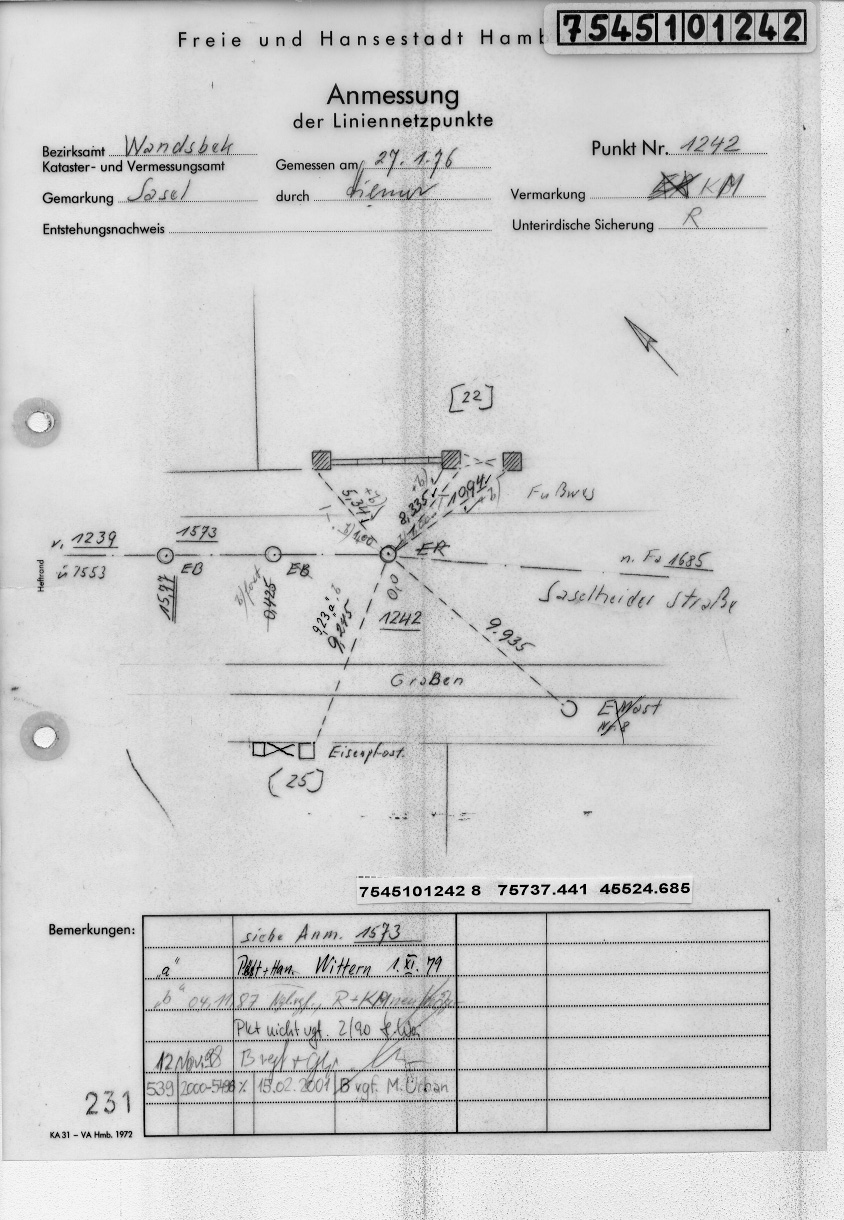 7545101242
Freie und Hansestadt Hamb
Anmessung
der Liniennetzpunkte
Bezirksamt Wandsbek
Kataster- und Vermessungsamt
Gemarkung Sasel
Entstehungsnachweis
Gemessen am 27.1.76
durch
Punkt Nr. 1242
Vermarkung KM
Unterirdische Sicherung R
[22]
5,341
8,335
10,94
Fußweg
v. 1239
1573
ü 7553
EB
EB
ER
n. Fa 1685
Saselheider Straße
15,97
0,425
9,23 "a", b
9,245
0,0
1242
9.935
Graben
Eisenpfost.
(25)
Heftrand
7545101242 8 75737.441 45524.685
Bemerkungen:
siehe Anm. 1573
"a" Wittern 1.XI.79
"b" 04.11.87 R+KM neu
Pkt nicht vgf. 2/90
12 Nov. 98
539 2000- % 15.02.2001 B vgf. M. Urban
231
KA 31 – VA Hmb. 1972